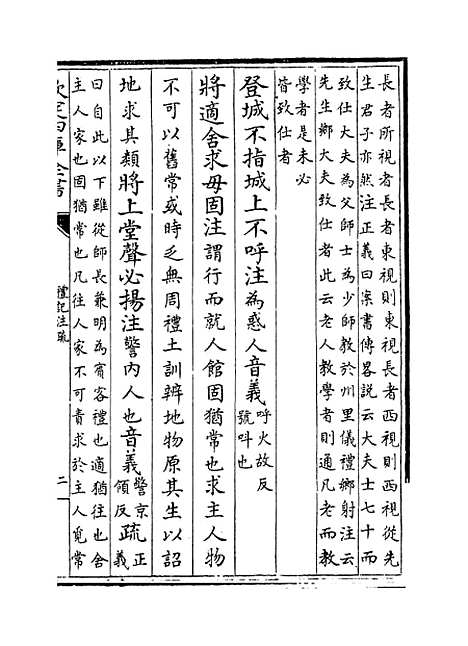 長者所視者長者東視則東視長者西視則西視從先
生君子亦然注正義曰案書傳畧説云大夫士七十而
致仕大夫為父師士為少師教於州里儀禮鄉射注云
先生鄉大夫致仕者此云老人教學者則通凡老而教
學者是未必
皆致仕者
登城不指城上不呼注為惑人音義呼火故反
號叫也
將適舍求毋固注謂行而就人館固猶常也求主人物
不可以舊常或時乏無周禮土訓辨地物原其生以詔
地求其類將上堂聲必揚注警內人也音義警京
領反疏正
義
曰自此以下雖從師長兼明為賓客禮也適猶往也舍
主人家也固猶常也凡往人家不可責求於主人覓常
欽定四庫全書
禮記注疏
二